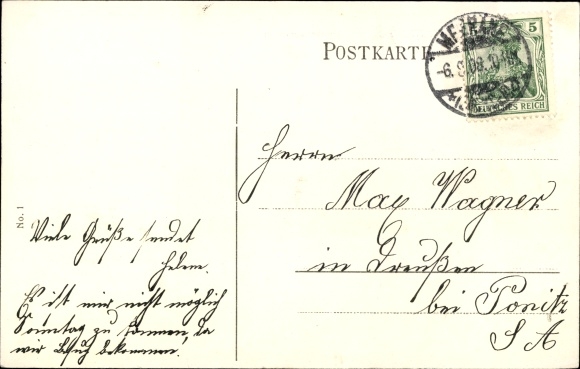 POSTKARTE
5
DEUTSCHES REICH
-6.9.08.
No. 1
Herrn
Max Wagner
in Dreußen
bei Ponitz
S A
Viele Grüße sendet
Helene.
Es ist mir nicht möglich
Sonntag zu kommen, da
wir Besuch bekommen.